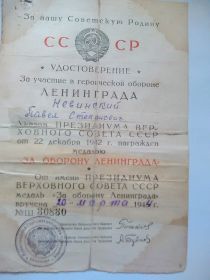 За нашу Советскую Родину
СС СР
УДОСТОВЕРЕНИЕ
За участие в героической обороне
ЛЕНИНГРАДА
Невинский
Павел Степанович
Указом ПРЕЗИДИУМА ВЕР-
ХОВНОГО СОВЕТА СССР
от 22 декабря 1942 г. награжден
медалью
„ЗА ОБОРОНУ ЛЕНИНГРАДА“
От имени ПРЕЗИДИУМА
ВЕРХОВНОГО СОВЕТА СССР
медаль „За оборону Ленинграда“
вручена 20 марта 1944 г.
30830